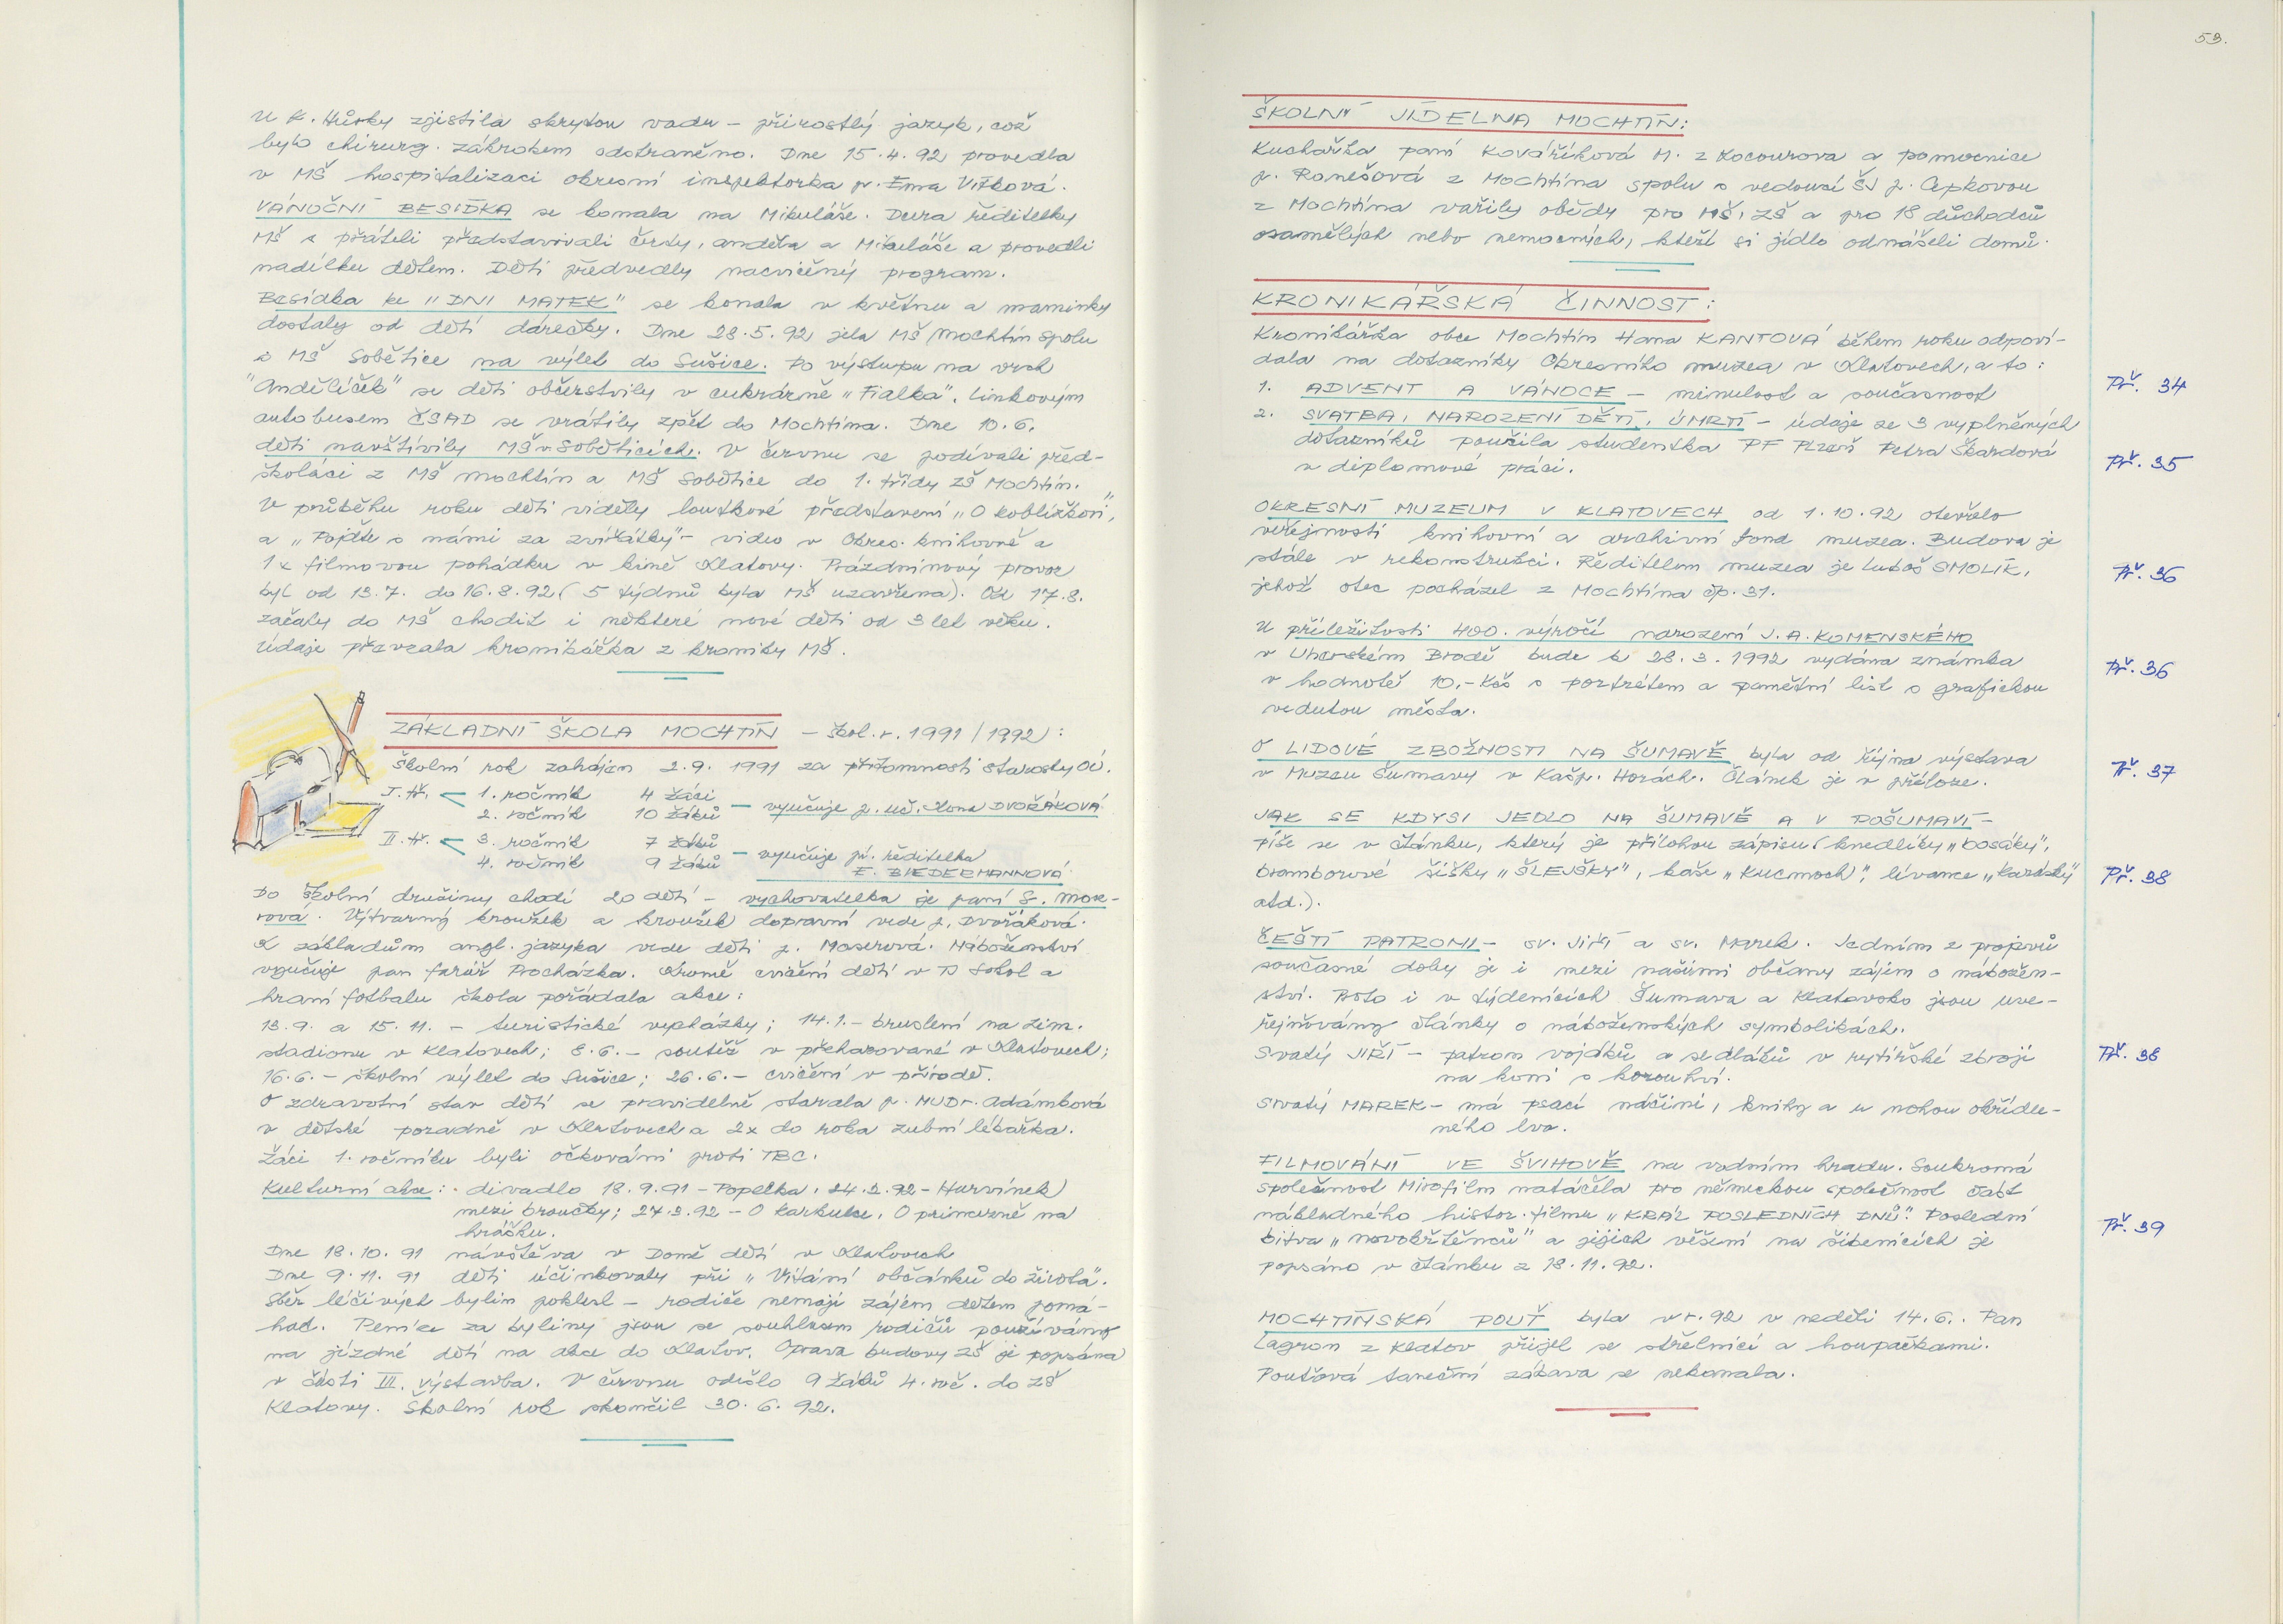 U K. Hůrky zjistila skrytou vadu – přirostlý jazyk, což
bylo chirurg. zákrokem odstraněno. Dne 15.4.92 provedla
v MŠ hospitalizaci okresní inspektorka p. Ema Vítková.
VÁNOČNÍ BESÍDKA se konala na Mikuláše. Dcera ředitelky
MŠ s přáteli představovali čerty, anděla a Mikuláše a provedli
nadílku dětem. Děti předvedly nacvičený program.
Besídka ke "DNI MATEK" se konala v květnu a maminky
dostaly od dětí dárečky. Dne 28.5.92 jela MŠ Mochtín spolu
s MŠ Sobětice na výlet do Sušice. Po výstupu na vrch
"Andělíček" se děti občerstvily v cukrárně „Fialka". Linkovým
autobusem ČSAD se vrátily zpět do Mochtína. Dne 10.6.
děti navštívily MŠ v Soběticích. V červnu se podívali před-
školáci z MŠ Mochtín a MŠ Sobětice do 1. třídy ZŠ Mochtín.
V průběhu roku děti viděly loutkové představení „O koblížkovi",
a „Pojďte s námi za zvířátky" – video v Okres. knihovně a
1x filmovou pohádku v kině Klatovy. Prázdninový provoz
byl od 13.7. do 16.8.92 (5 týdnů byla MŠ uzavřena). Od 17.8.
začaly do MŠ chodit i některé nové děti od 3 let věku.
Údaje převzala kronikářka z kroniky MŠ.
ZÁKLADNÍ ŠKOLA MOCHTÍN – škol. r. 1991/1992):
Školní rok zahájen 2.9. 1991 za přítomnosti starosty OÚ.
I. tř. < 1. ročník 4 žáci
2. ročník 10 žáků – vyučuje p. uč. Ilona DVOŘÁKOVÁ.
II. tř. < 3. ročník 7 žáků
4. ročník 9 žáků – vyučuje pí. ředitelka
E. BIEDERMANNOVÁ.
Do školní družiny chodí 20 dětí – vychovatelka je paní S. Mok-
rová. Výtvarný kroužek a kroužek dopravní vede p. Dvořáková.
K základům angl. jazyka vede děti p. Maserová. Náboženství
vyučuje pan farář Procházka. Kromě cvičení dětí v TJ Sokol a
hraní fotbalu škola pořádala akce:
13.9. a 15.11. – turistické vycházky; 14.1. – bruslení na zim.
stadionu v Klatovech; 8.6. – soutěž v přehazované v Klatovech;
16.6. – školní výlet do Sušice; 26.6. – cvičení v přírodě.
O zdravotní stav dětí se pravidelně starala p. MUDr. Adámková
v dětské poradně v Klatovech a 2x do roka zubní lékařka.
Žáci 1. ročníku byli očkováni proti TBC.
Kulturní akce: - divadlo 18.9.91 – Popelka, 24.2.92 – Hurvínek
mezi broučky; 27.3.92 – O Karkulce, O princezně na
hrášku.
Dne 18.10.91 návštěva v Domě dětí v Klatovech
Dne 9.11.91 děti účinkovaly při „Vítání občánků do života".
Sběr léčivých bylin poklesl – rodiče nemají zájem dětem pomá-
hat. Peníze za byliny jsou se souhlasem rodičů používány
na jízdné dětí na akce do Klatov. Oprava budovy ZŠ je popsána
v části III. výstavba. V červnu odešlo 9 žáků 4. roč. do ZŠ
Klatovy. Školní rok skončil 30.6.92.
53.
ŠKOLNÍ JÍDELNA MOCHTÍN:
Kuchařka paní Kováříková M. z Kocourova a pomocnice
p. Ronešová z Mochtína spolu s vedoucí ŠJ p. Cepkovou
z Mochtína vařily obědy pro MŠ, ZŠ a pro 18 důchodců
osamělých nebo nemocných, kteří si jídlo odnášeli domů.
KRONIKÁŘSKÁ ČINNOST:
Kronikářka obce Mochtín Hana KANTOVÁ během roku odpoví-
dala na dotazníky Okresního muzea v Klatovech, a to:
1. ADVENT A VÁNOCE – minulost a současnost Př. 34
2. SVATBA, NAROZENÍ DĚTÍ, ÚMRTÍ – údaje ze 3 vyplněných
dotazníků použila studentka PF Plzeň Petra Škardová
v diplomové práci. Př. 35
OKRESNÍ MUZEUM V KLATOVECH od 1.10.92 otevřelo
veřejnosti knihovní a archivní fond muzea. Budova je
stále v rekonstrukci. Ředitelem muzea je Luboš SMOLÍK, Př. 36
jehož otec pocházel z Mochtína čp. 31.
U příležitosti 400. výročí narození J.A. KOMENSKÉHO
v Uherském Brodě bude k 28.3.1992 vydána známka Př. 36
v hodnotě 10,- Kčs s portrétem a pamětní list s grafickou
vedutou města.
O LIDOVÉ ZBOŽNOSTI NA ŠUMAVĚ byla od října výstava
v Muzeu Šumavy v Kašp. Horách. Článek je v příloze. Př. 37
JAK SE KDYSI JEDLO NA ŠUMAVĚ A V POŠUMAVÍ –
píše se v článku, který je přílohou zápisu (knedlíky „bosáky",
bramborové šišky „ŠLEJŠKY", kaše „Kucmoch", lívance „karásky" Př. 38
atd.).
ČEŠTÍ PATRONI – sv. Jiří a sv. Marek. Jedním z projevů
současné doby je i mezi našimi občany zájem o nábožen-
ství. Proto i v týdenících Šumava a Klatovsko jsou uve-
řejňovány články o náboženských symbolikách.
Svatý JIŘÍ – patron vojáků a sedláků v rytířské zbroji Př. 38
na koni s korouhví.
Svatý MAREK – má psací náčiní, knihy a u nohou okřídle-
ného lva.
FILMOVÁNÍ VE ŠVIHOVĚ na vodním hradu. Soukromá
společnost Mirofilm natáčela pro německou společnost část
nákladného histor. filmu „KRÁL POSLEDNÍCH DNŮ". Poslední Př. 39
bitva „novokřtěnců" a jejich věšení na šibenicích je
popsáno v článku z 18.11.92.
MOCHTÍNSKÁ POUŤ byla v r. 92 v neděli 14.6.. Pan
Lagron z Klatov přijel se střelnicí a houpačkami.
Pouťová taneční zábava se nekonala.